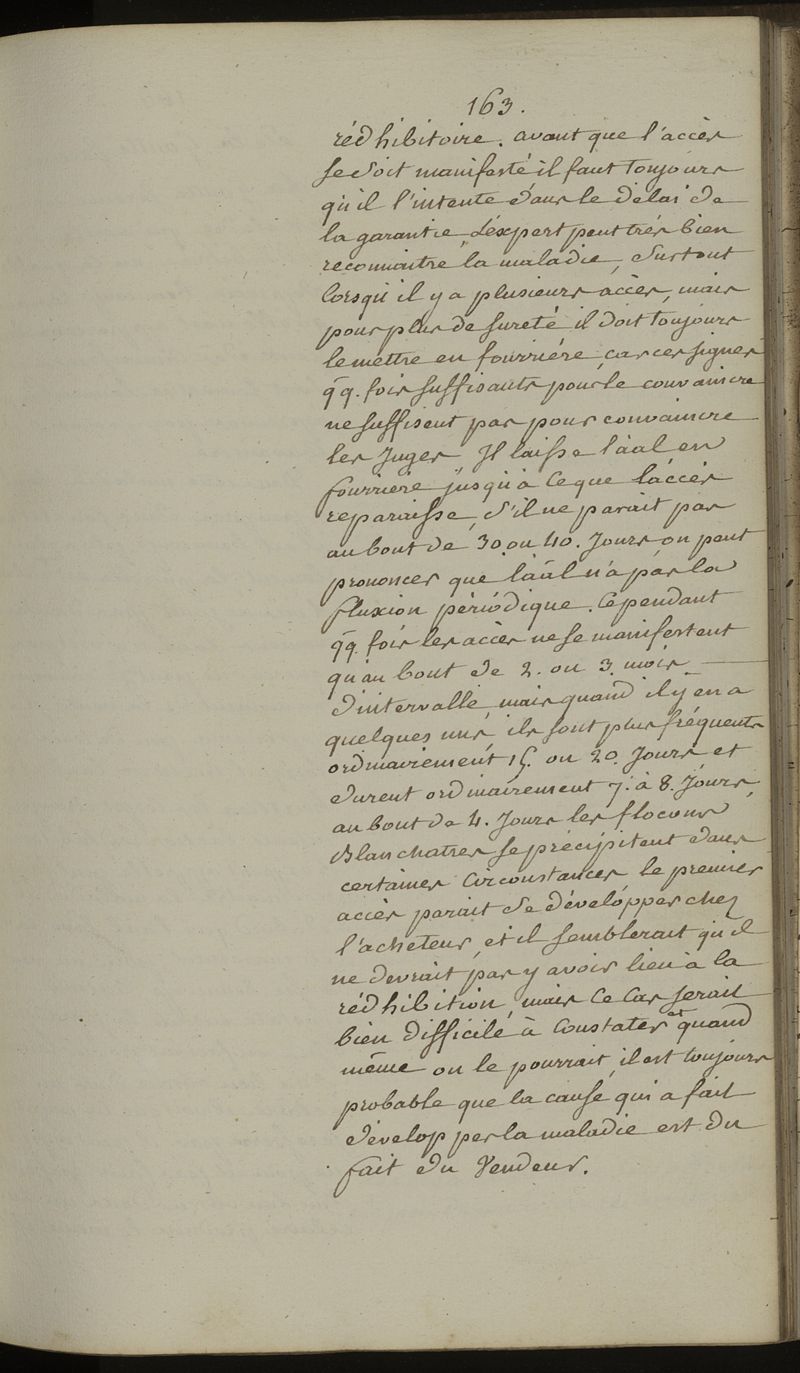 163.
rédhibitoire. avant que l'accès
se soit manifesté il faut toujours
qu'il l'intente dans le délai de
la garantie, L'expert peut très bien
reconnaitre la maladie, surtout
lorsqu'il y a plusieurs accès, mais
pour plus de sureté il doit toujours
le mettre en fourrière car ces signes
qq. fois suffisants pour le convaincre
ne suffisent pas pour convaincre
les Juges. Il laisse l'aal en
fourriere jusqu'à ce que l'accès
reparaisse, s'il ne parait pas
au bout de 30 ou 40. Jours on peut
prononcer que l'aal n'a pas la
fluxion périodique. Cependant
qq. fois les accès ne se manifestent
qu'au bout de 2. ou 3. mois
d'intervalle, mais quand il y en a
quelques uns, ils sont plus fréquents
ordinairement 15. ou 20. Jours, et
durent ordinairement 7. à 8. Jours,
au bout de 4. Jours les flocons
Blanchatres se précipitent dans
certaines circonstances le premier
accès parait se développer chez
l'acheteur, et il semblerait qu'il
ne devrait pas y avoir lieu à la
rédhibition, mais ce cas serait
bien difficile à constater et quand
même on le pourrait, il est toujours
probable que la cause qui a fait
développer la maladie est du
fait du Vendeur.